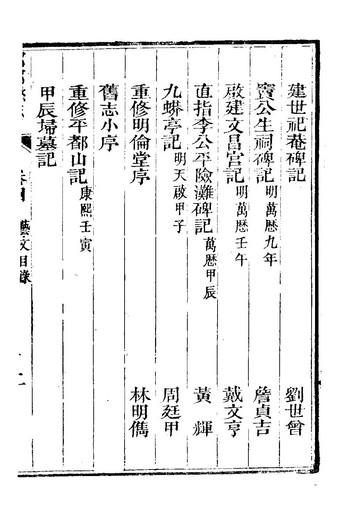 建世祀菴碑記 劉世曾
竇公生祠碑記明萬歷九年 詹貞吉
啟建文昌宮記明萬歷壬午 戴文亨
直指李公平險灘碑記萬歷甲辰 黃輝
九蟒亭記明天啟甲子 周廷甲
重修明倫堂序 林明儁
舊志小序
重修平都山記康熙壬寅
甲辰掃墓記
藝文目錄